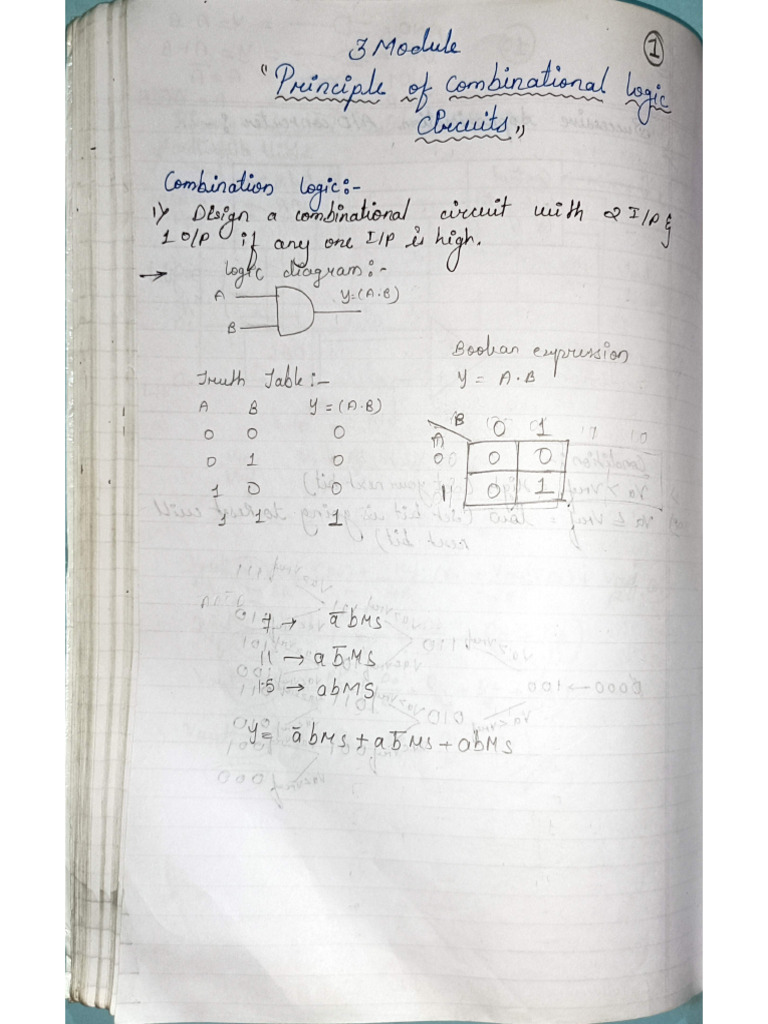 1
3 Module
"Principle of Combinational logic
Circuits"
Combination logic:-
1) Design a combinational circuit with 2 I/P &
1 O/P if any one I/P is high.
→ logic diagram:-
A Y=(A·B)
B
Boolean expression
Y = A·B
Truth Table:-
A B Y=(A·B)
0 0 0
0 1 0
1 0 0
1 1 1
B 0 1
A
0 0 0
1 0 1
7 → a̅bMS
11 → ab̅MS
15 → abMS
Y= a̅bMS + ab̅MS + abMS